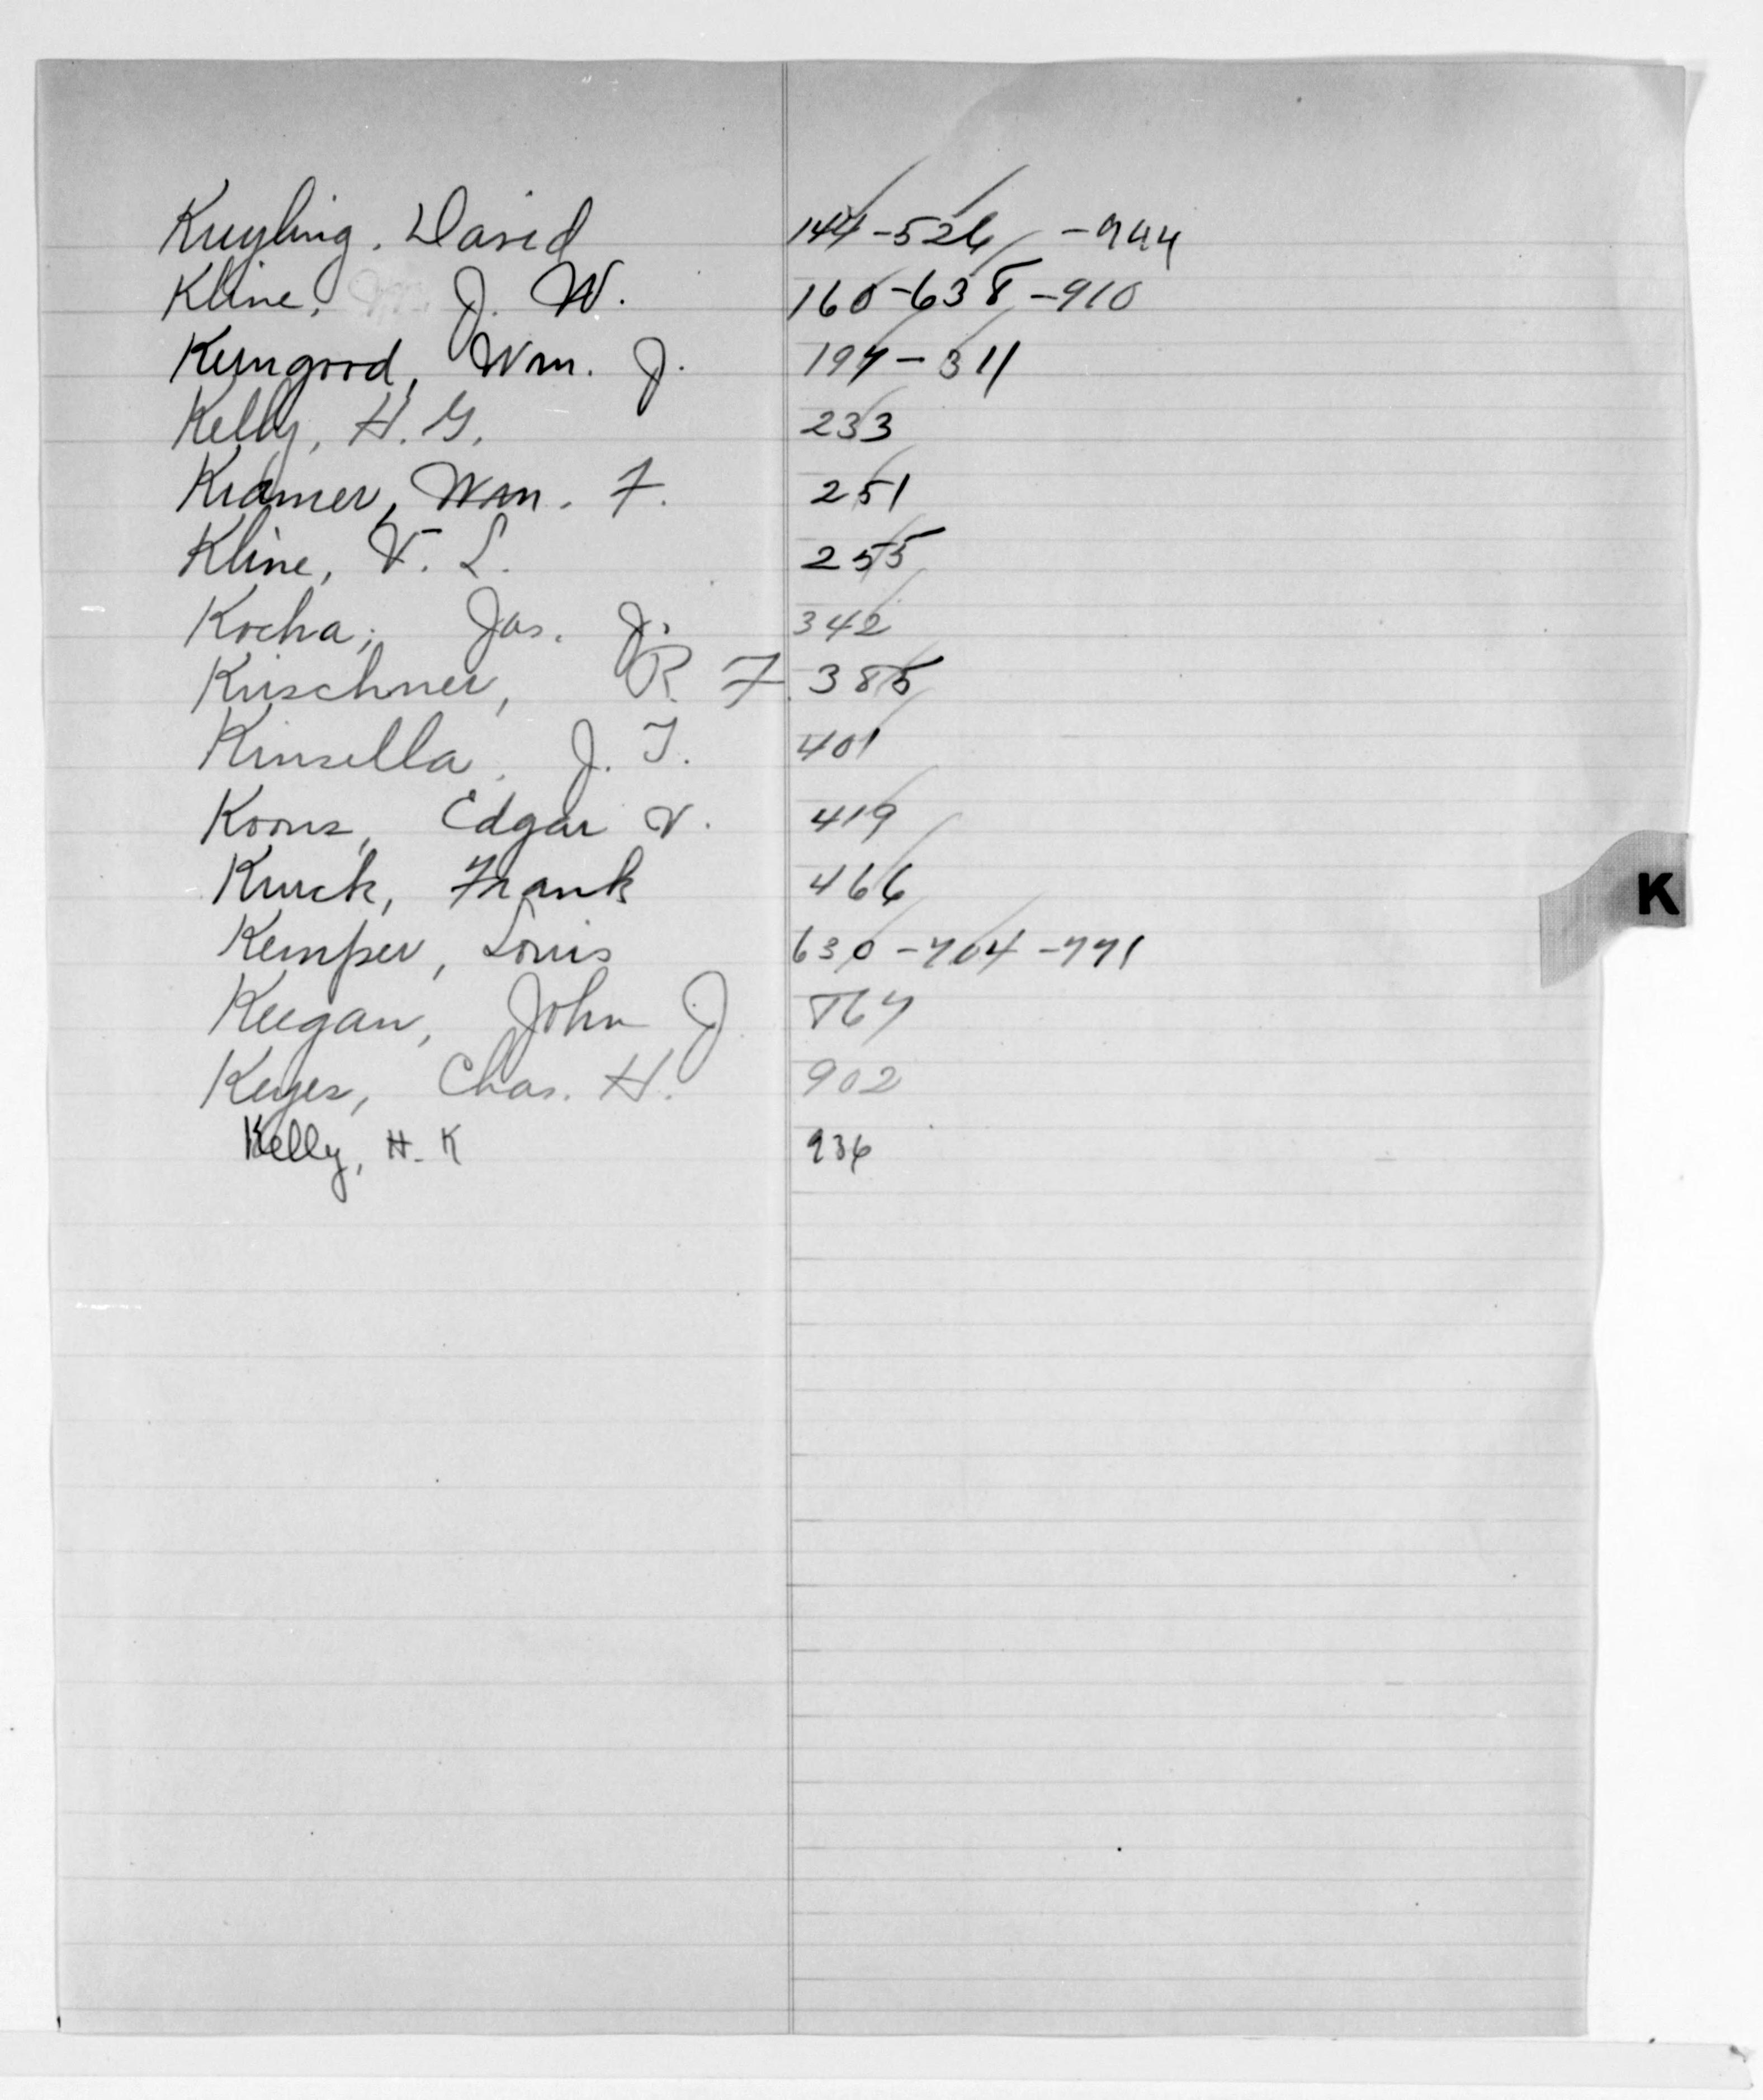 Kuyling, David 144-526 -944
Kline, J. W. 160-638-910
Kerngood, Wm. J. 197-311
Kelly, H. G. 233
Kramer, Wm. F. 251
Kline, V. L. 255
Kocha, Jas. J. 342
Kirschner, R. F. 385
Kinsella, J. T. 401
Koons, Edgar V. 419
K
Frank 466
Kemper, Louis 630-704-771
Keegan, John J 867
Keyes, Chas. H. 902
Kelly, H. K 936